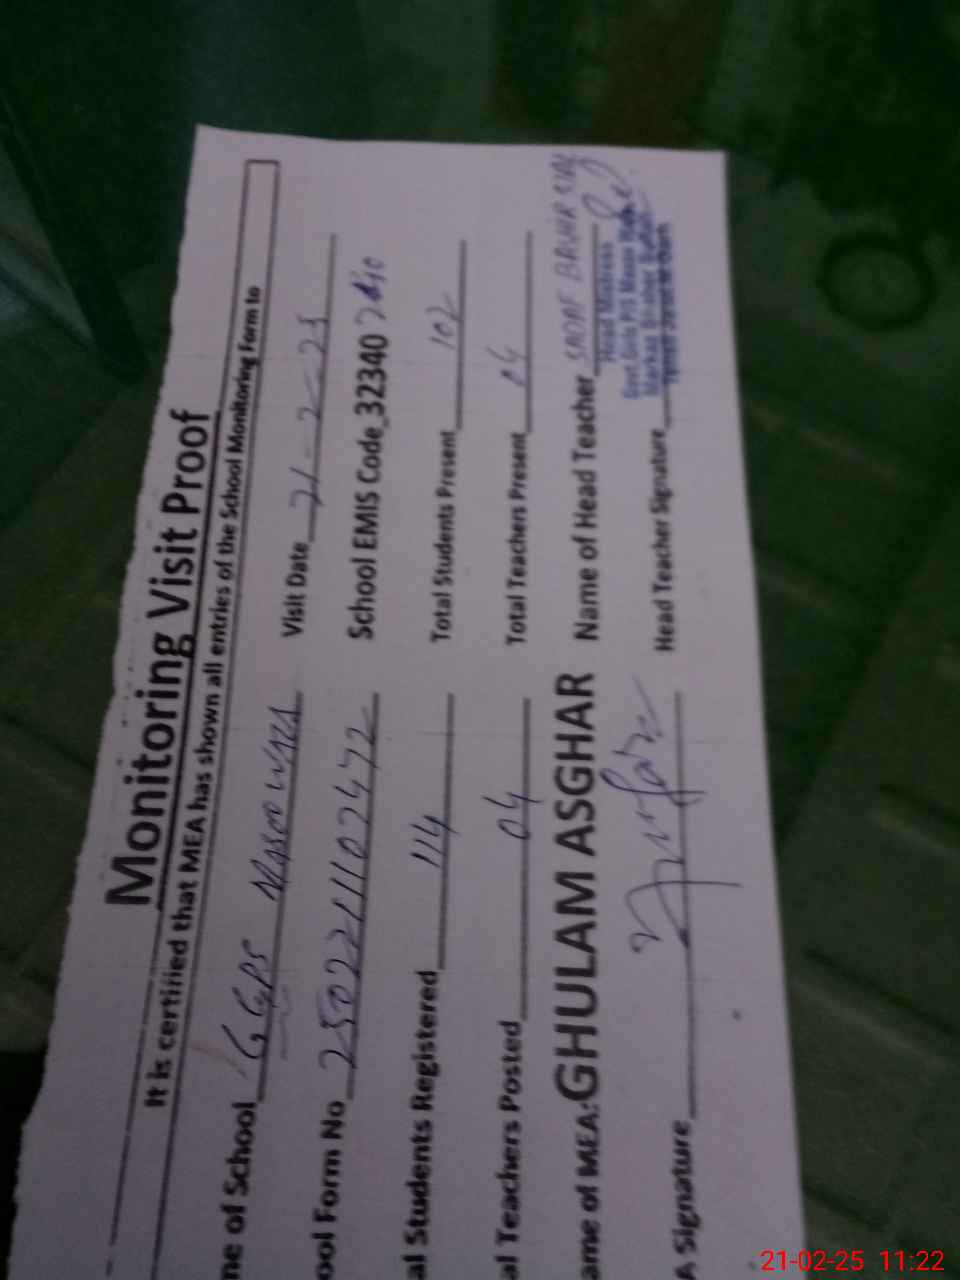 Monitoring Visit Proof
It is certified that MEA has shown all entries of the School Monitoring Form to
ne of School GGPS Visit Date 21-2-25
ool Form No 25022111027472 School EMIS Code_32340
al Students Registered 114 Total Students Present 102
al Teachers Posted 04 Total Teachers Present 04
ame of MEA: GHULAM ASGHAR Name of Head Teacher
A Signature Head Teacher Signature
Head Mistress
Govt. Girls P/S
Markaz
21-02-25 11:22